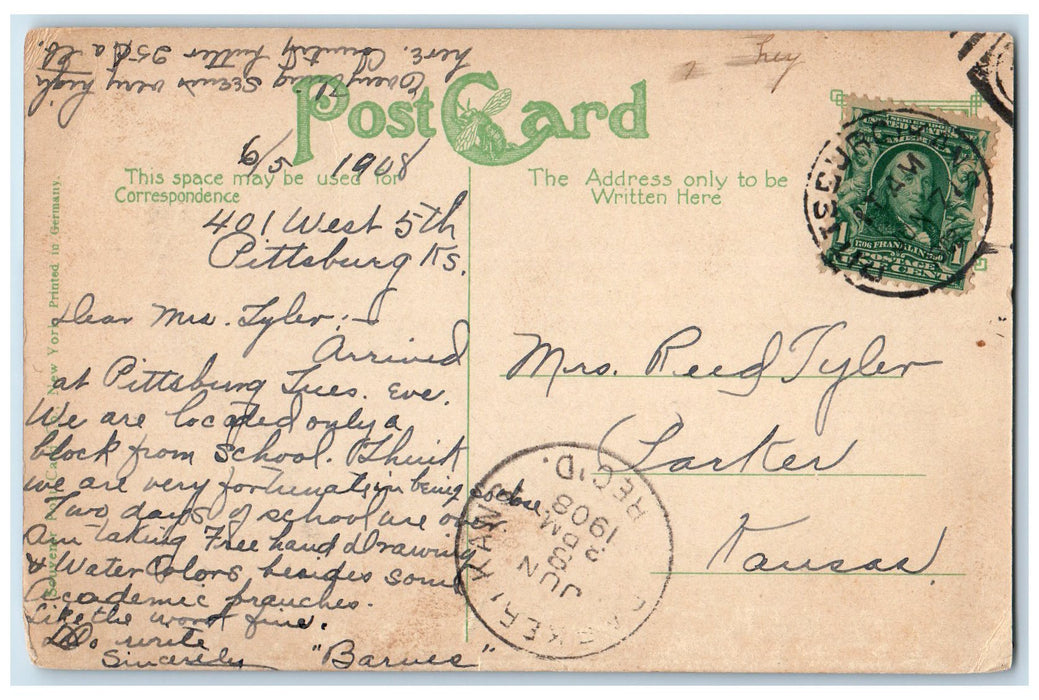 Everything seems very high
here. Country butter 25¢ a lb.
They
Post Card
6/5 1908
This space may be used for
Correspondence
The Address only to be
Written Here
401 West 5th
Pittsburg Ks.
Dear Mrs. Tyler:-
Arrived
at Pittsburg Tues. Eve.
We are located only a
block from School. I think
we are very fortunate in being so close.
Two days of school are over
Am taking Free hand drawing
& Water Colors besides some
Academic branches.
Like the work fine.
Do write
Sincerely "Barnes"
Mrs. Reed Tyler
Larker
Kansas.
SERIES 1902
1
1706 FRANKLIN 1790
POSTAGE
ONE CENT
PITTSBURG KANS
AM
KANS.
REC'D.
1908
JUN
Souvenir Post Card Co. New York Printed in Germany.